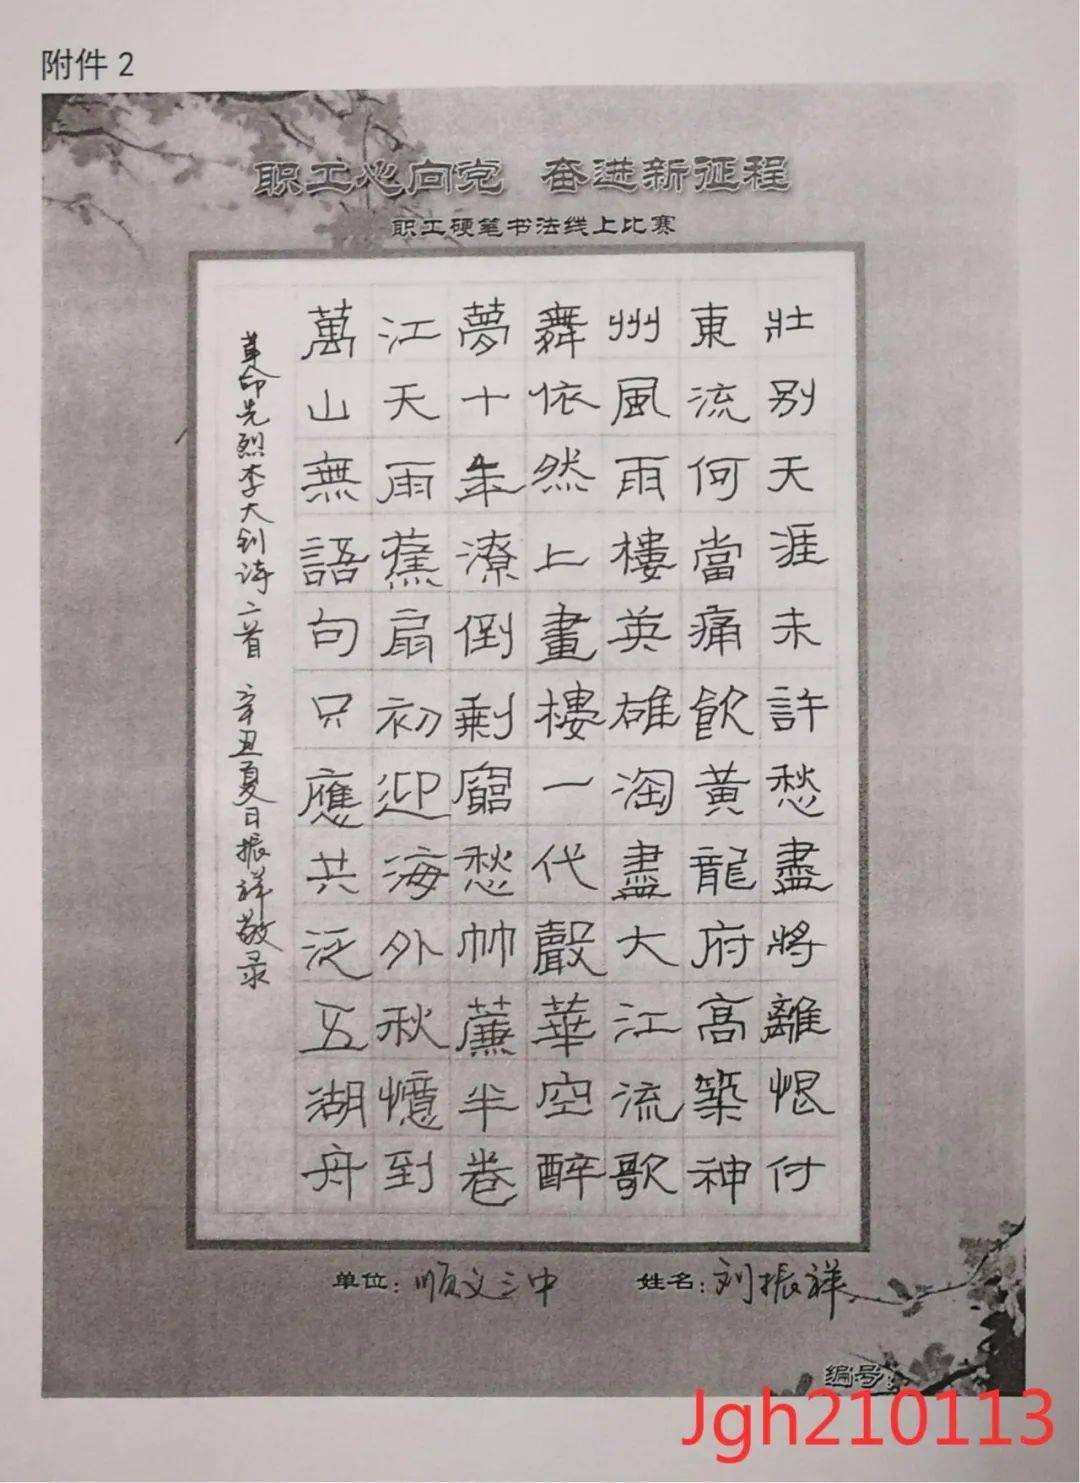 附件 2
职工心向党 奋进新征程
职工硬笔书法线上比赛
壯别天涯未許愁盡將離恨付
東流何當痛飲黃龍府高築神
州風雨樓英雄淘盡大江流歌
舞依然上畫樓一代聲華空醉
夢十年潦倒剩窮愁竹簾半卷
江天雨蕉扇初迎海外秋憶到
萬山無語句只應共泛五湖舟
革命先烈李大钊诗二首 辛丑夏日振祥敬录
单位：顺义三中 姓名：刘振祥
编号：
Jgh210113